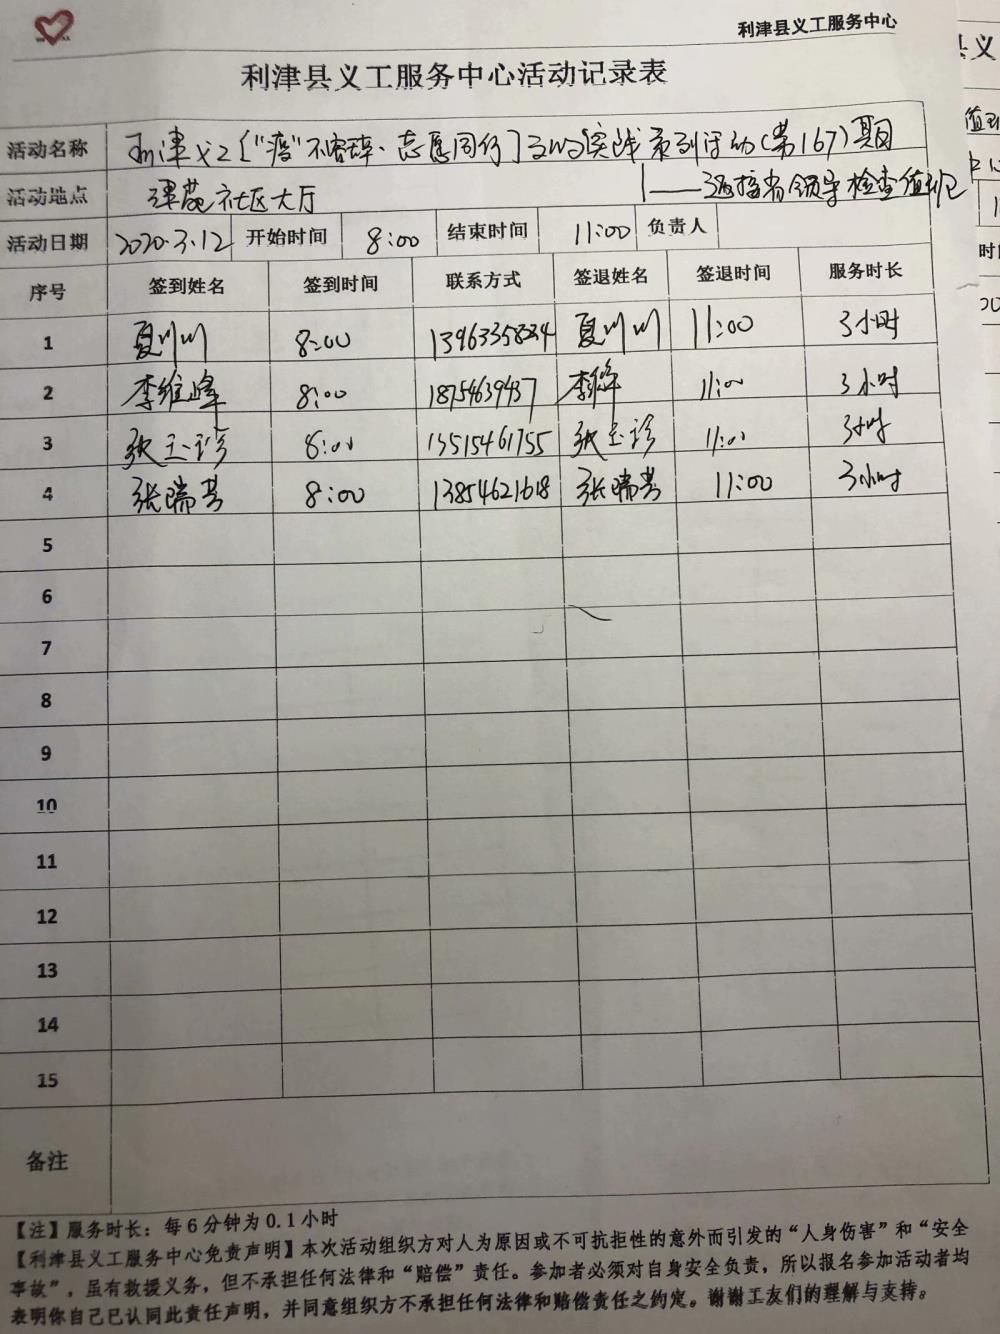 利津县义工服务中心
利津县义工服务中心活动记录表
活动名称 利津义工["疫"不容辞·志愿同行] 实践系列活动(第167)期
活动地点 津苑社区大厅 ——迎接省领导检查值班
活动日期 2020.3.12 开始时间 8:00 结束时间 11:00 负责人
序号 签到姓名 签到时间 联系方式 签退姓名 签退时间 服务时长
1 夏川川 8:00 夏川川 11:00 3小时
2 李维峰 8:00 18754639437 11:00 3小时
3 张玉珍 8:00 13515461755 张玉珍 11:00 3小时
4 张瑞芸 8:00 13854621618 张瑞芸 11:00 3小时
5
6
7
8
9
10
11
12
13
14
15
备注
【注】服务时长：每6分钟为0.1小时
【利津县义工服务中心免责声明】本次活动组织方对人为原因或不可抗拒性的意外而引发的“人身伤害”和“安全
事故”，虽有救援义务，但不承担任何法律和“赔偿”责任。参加者必须对自身安全负责，所以报名参加活动者均
表明你自己已认同此责任声明，并同意组织方不承担任何法律和赔偿责任之约定。谢谢工友们的理解与支持。